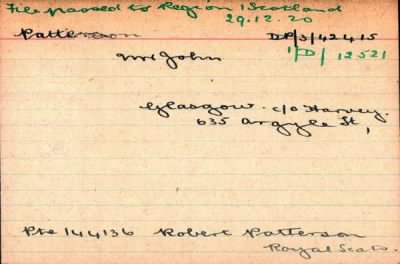 File passed to Region 1 Scotland
29.12.20
Patterson DP/3/42415
1/D/12521
Mr John
Glasgow. c/o Harvey.
635 Argyle St,
Pte 144136 Robert Patterson
Royal Scots.